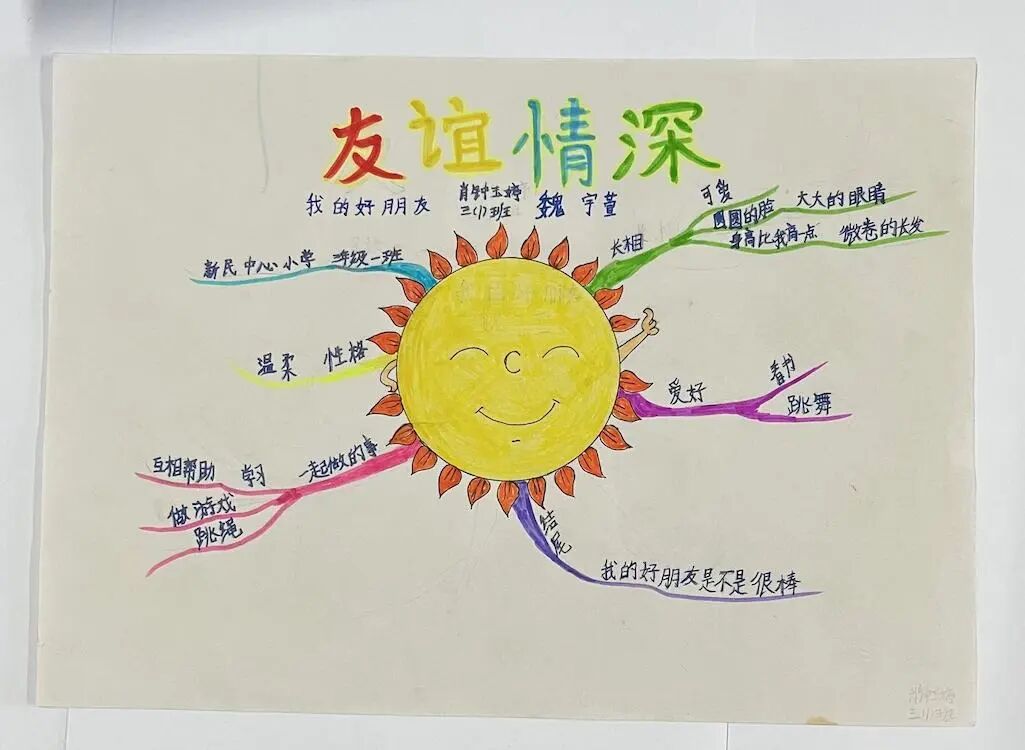 友谊情深
我的好朋友
肖钟玉婷
三(1)班
魏宇萱
新民中心小学 三年级一班
长相
可爱
圆圆的脸 大大的眼睛
身高比我高一点 微卷的长发
温柔 性格
爱好
看书
跳舞
互相帮助 学习
一起做的事
做游戏
跳绳
结尾
我的好朋友是不是很棒
三(1)班